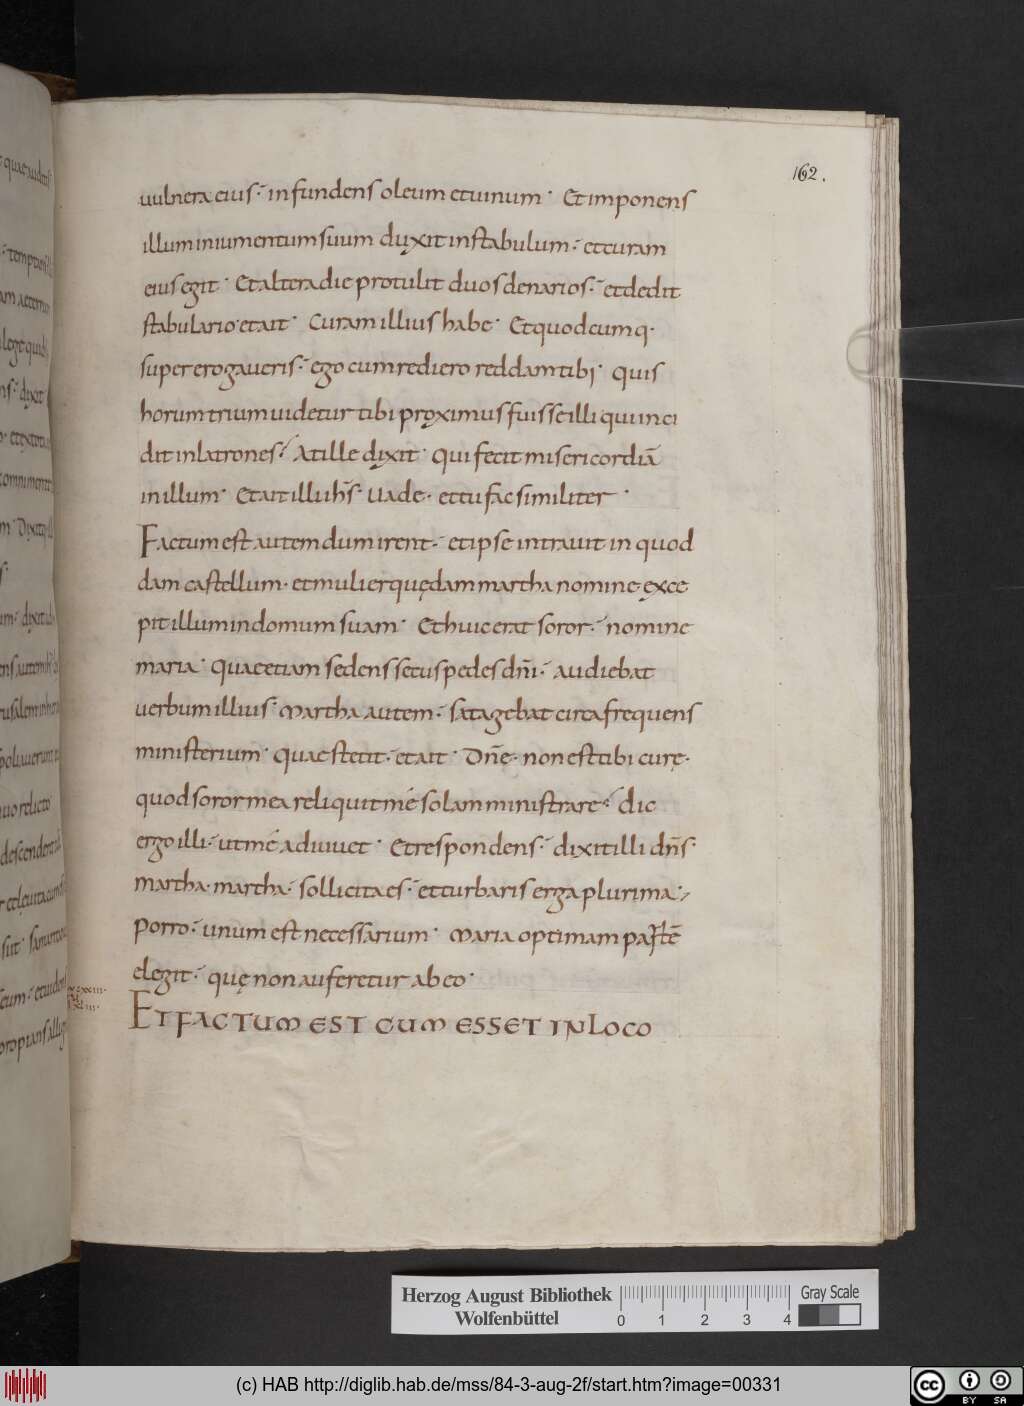 162.
uulnera eius · infundens oleum et uinum · Et imponens
illum in iumentum suum duxit in stabulum · et curam
eius egit · Et altera die protulit duos denarios · et dedit
stabulario · et ait · Curam illius habe · Et quodcumq·
supererogaueris · ego cum rediero reddam tibi · quis
horum trium uidetur tibi proximus fuisse illi qui inci
dit in latrones · At ille dixit · Qui fecit misericordiā
in illum · Et ait illi ihs̄ · Uade · et tu fac similiter ·
Factum est autem dum irent · et ipse intrauit in quod
dam castellum · et mulier quędam martha nomine · exce
pit illum in domum suam · Et huic erat soror · nomine
maria · quae etiam sedens secus pedes dn̄i · audiebat
uerbum illius · Martha autem · satagebat circa frequens
ministerium · Quae stetit · et ait · Dn̄e · non est tibi curę ·
quod soror mea reliquit mé solam ministrare · dic
ergo illi · ut mé adiuuet · Et respondens · dixit illi dn̄s ·
martha · martha · sollicita es · et turbaris erga plurima ·
Porro · unum est necessarium · Maria optimam partē
elegit · quę non auferetur ab eo ·
ET FACTUM EST CUM ESSET IN LOCO
Herzog August Bibliothek
Wolfenbüttel
0 1 2 3 4
Gray Scale
(c) HAB http://diglib.hab.de/mss/84-3-aug-2f/start.htm?image=00331
cc BY SA